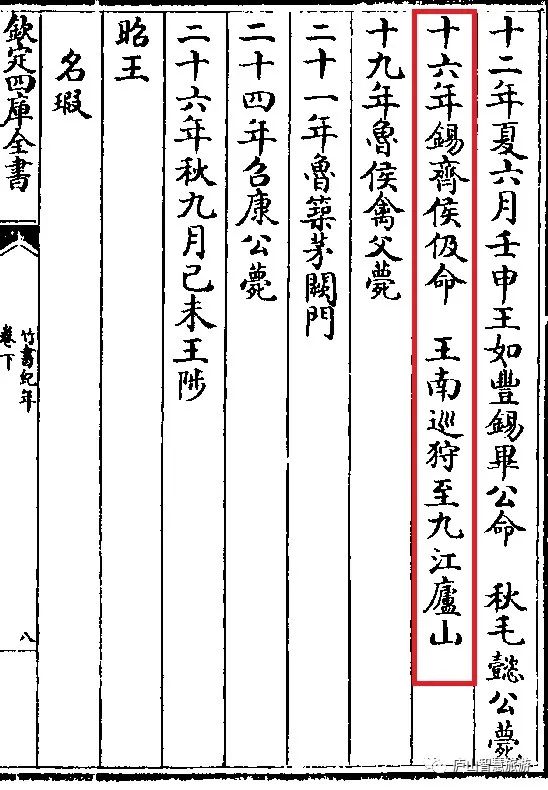 十二年夏六月壬申王如豐錫畢公命　秋毛懿公薨
十六年錫齊侯伋命　王南巡狩至九江廬山
十九年魯侯禽父薨
二十一年魯築茅闕門
二十四年召康公薨
二十六年秋九月己未王陟
昭王
名瑕
欽定四庫全書
竹書紀年
卷下
八
庐山智慧旅游